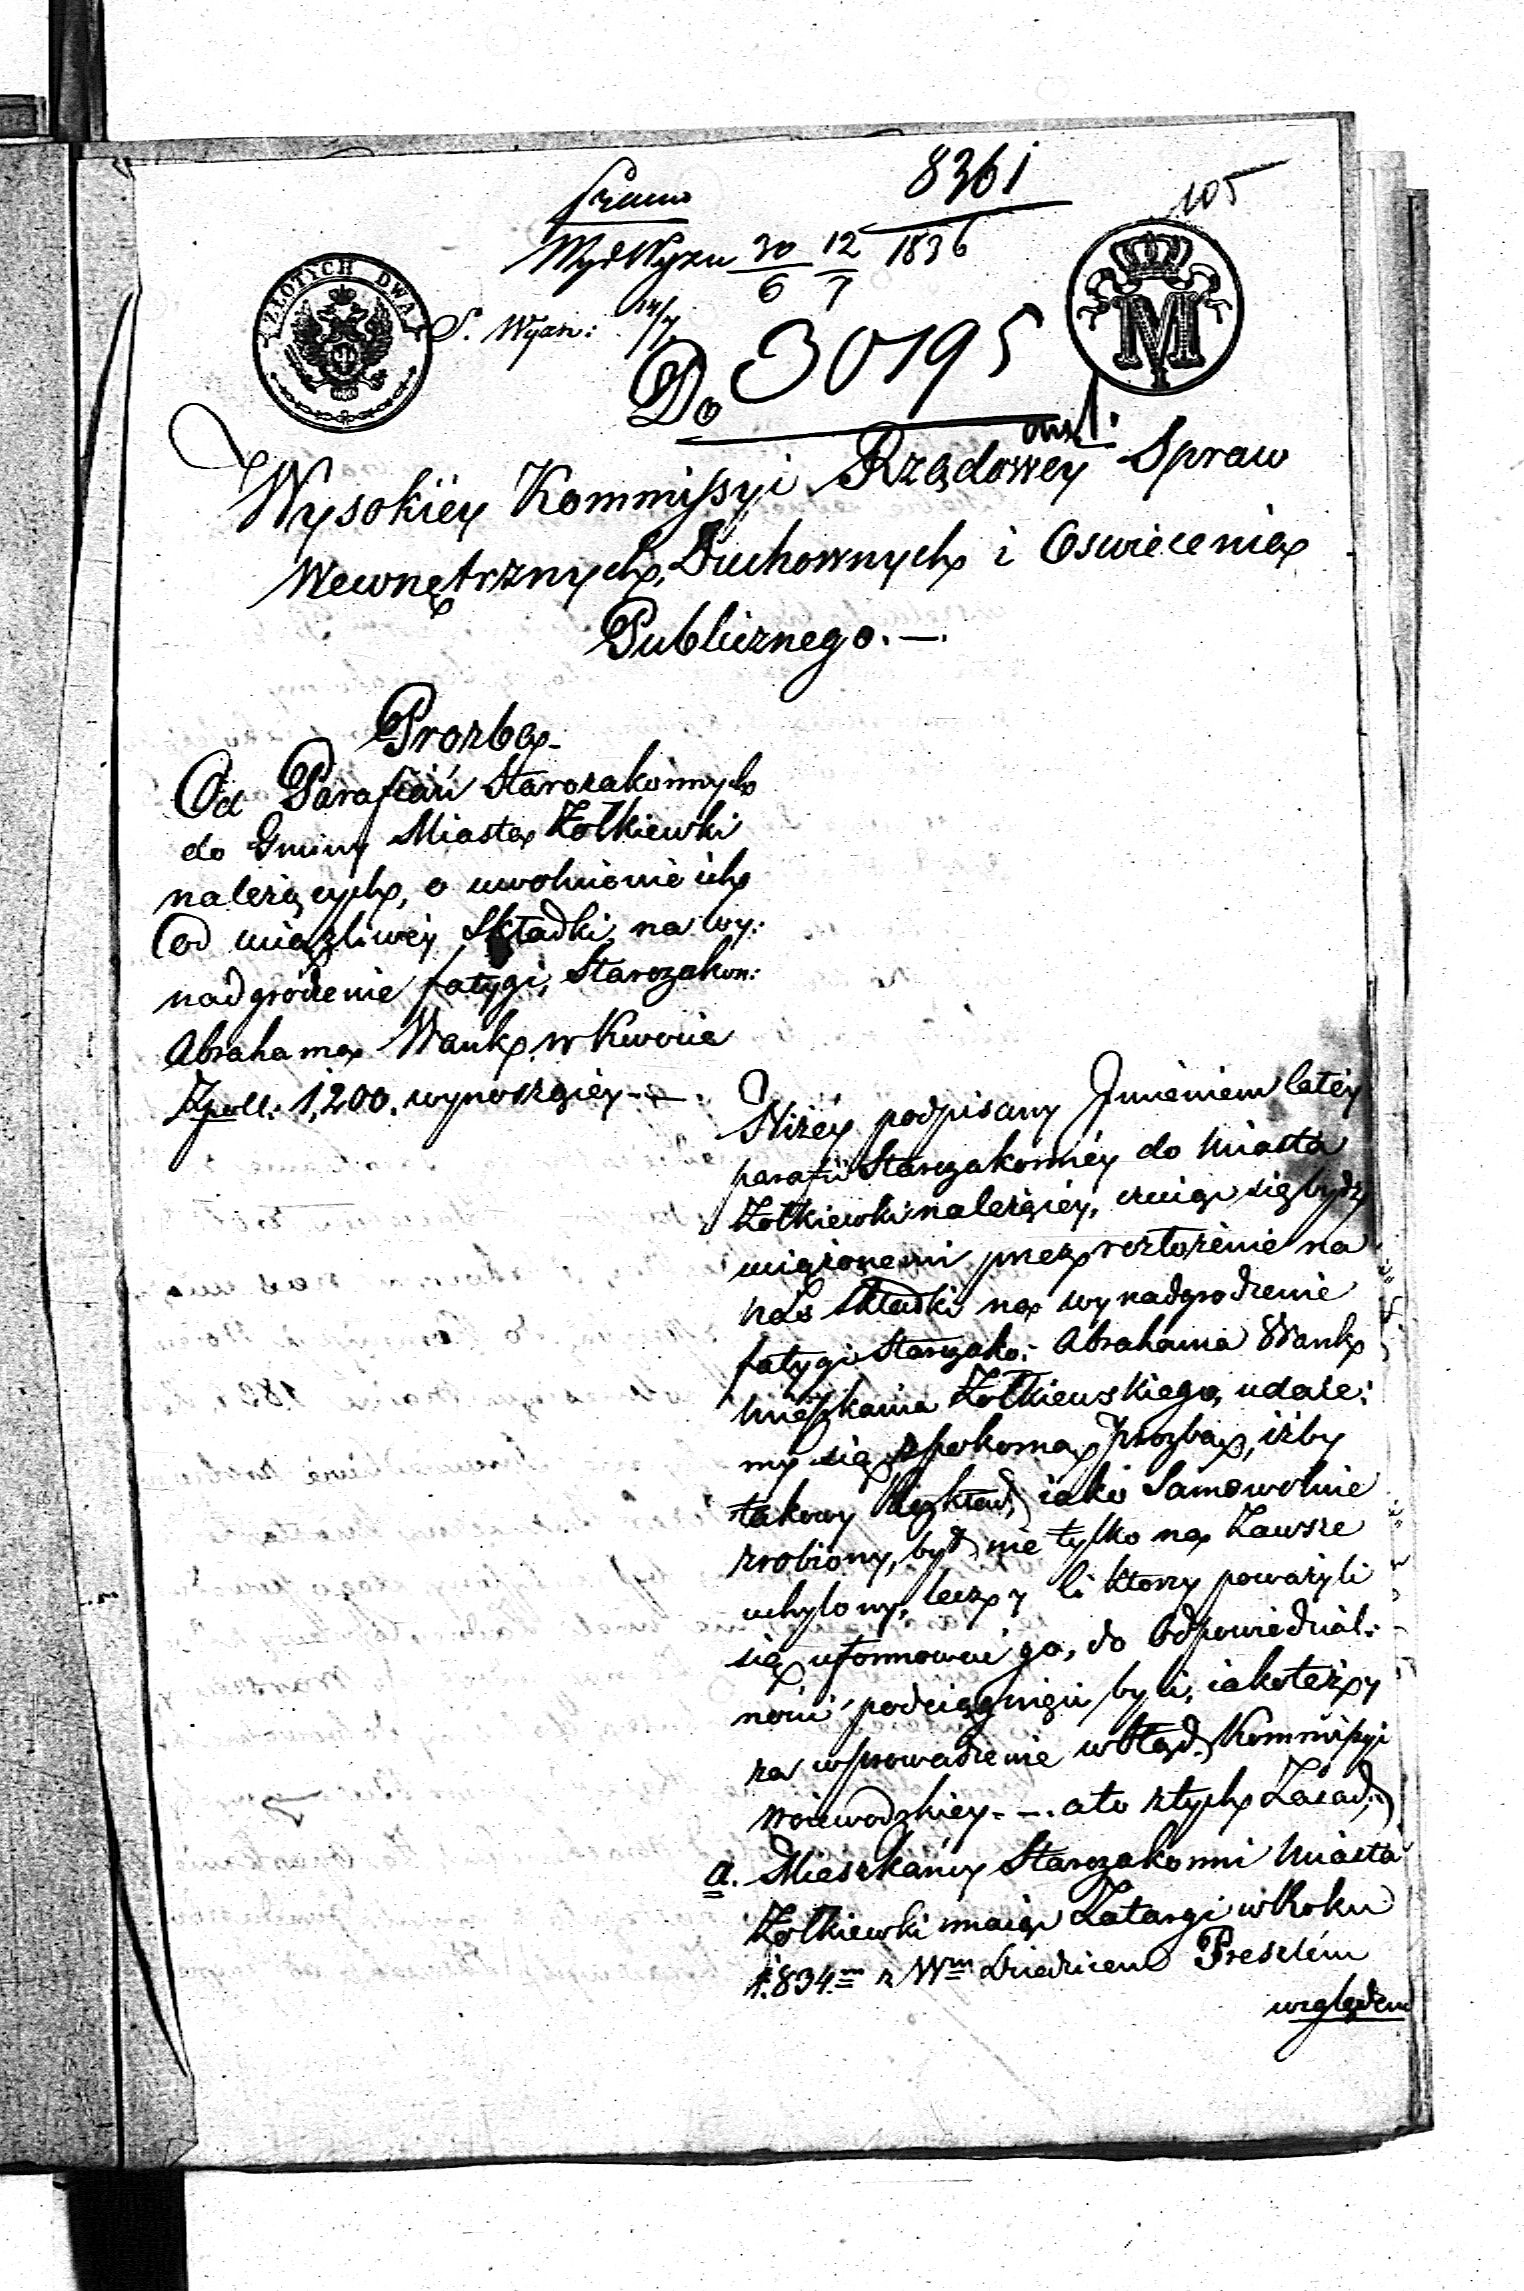 8361
105
Wyd Wyzn 30/6 12/7 1836
ZŁOTYCH DWA
S. Wyzn: 14/7
M
Do 30195
Wysokiey Kommissyi Rządowey Spraw
Wewnętrznych, Duchownych i Oswiecenia
Publicznego. —.
Prozba
Od Parafiań Starozakonnych
do Gminy Miasta Żołkiewki
należących, o uwolnienie ich
od uciążliwey Składki, na wy:
nadgrodzenie fatygi, Starozakon:
Abrahama Wank, w Kwocie
Zpoll: 1,200. wynoszącey. —
Niżey podpisany Jmieniem całéy
parafii Starozakonnéy do Miasta
Żołkiewki należącéy, czuiąc się bydź
uciążonemi przez rozłożenie na
nas składki na wynadgrodzenie
fatygi Starozako: Abrahama Wank
Mieszkańca Żołkiewskiego, udaie:
my się z pokorną prozbą, iżby
takowy Rozkład, iako Samowolnie
zrobiony, był nie tylko na Zawsze
uchylony, lecz y Ci ktorzy poważyli
się uformować go, do Odpowiedzial:
ności pociągnięci byli, iakoteż y
za wprowadzenie w błąd Kommissyi
Woiewodzkiey. —. a to z tych Zasad,
a. Mieszkańcy Starozakonni Miasta
Żołkiewki maiąc Zatargi w Roku
1834.m z Wm Dziedzicem Preszlém
względem